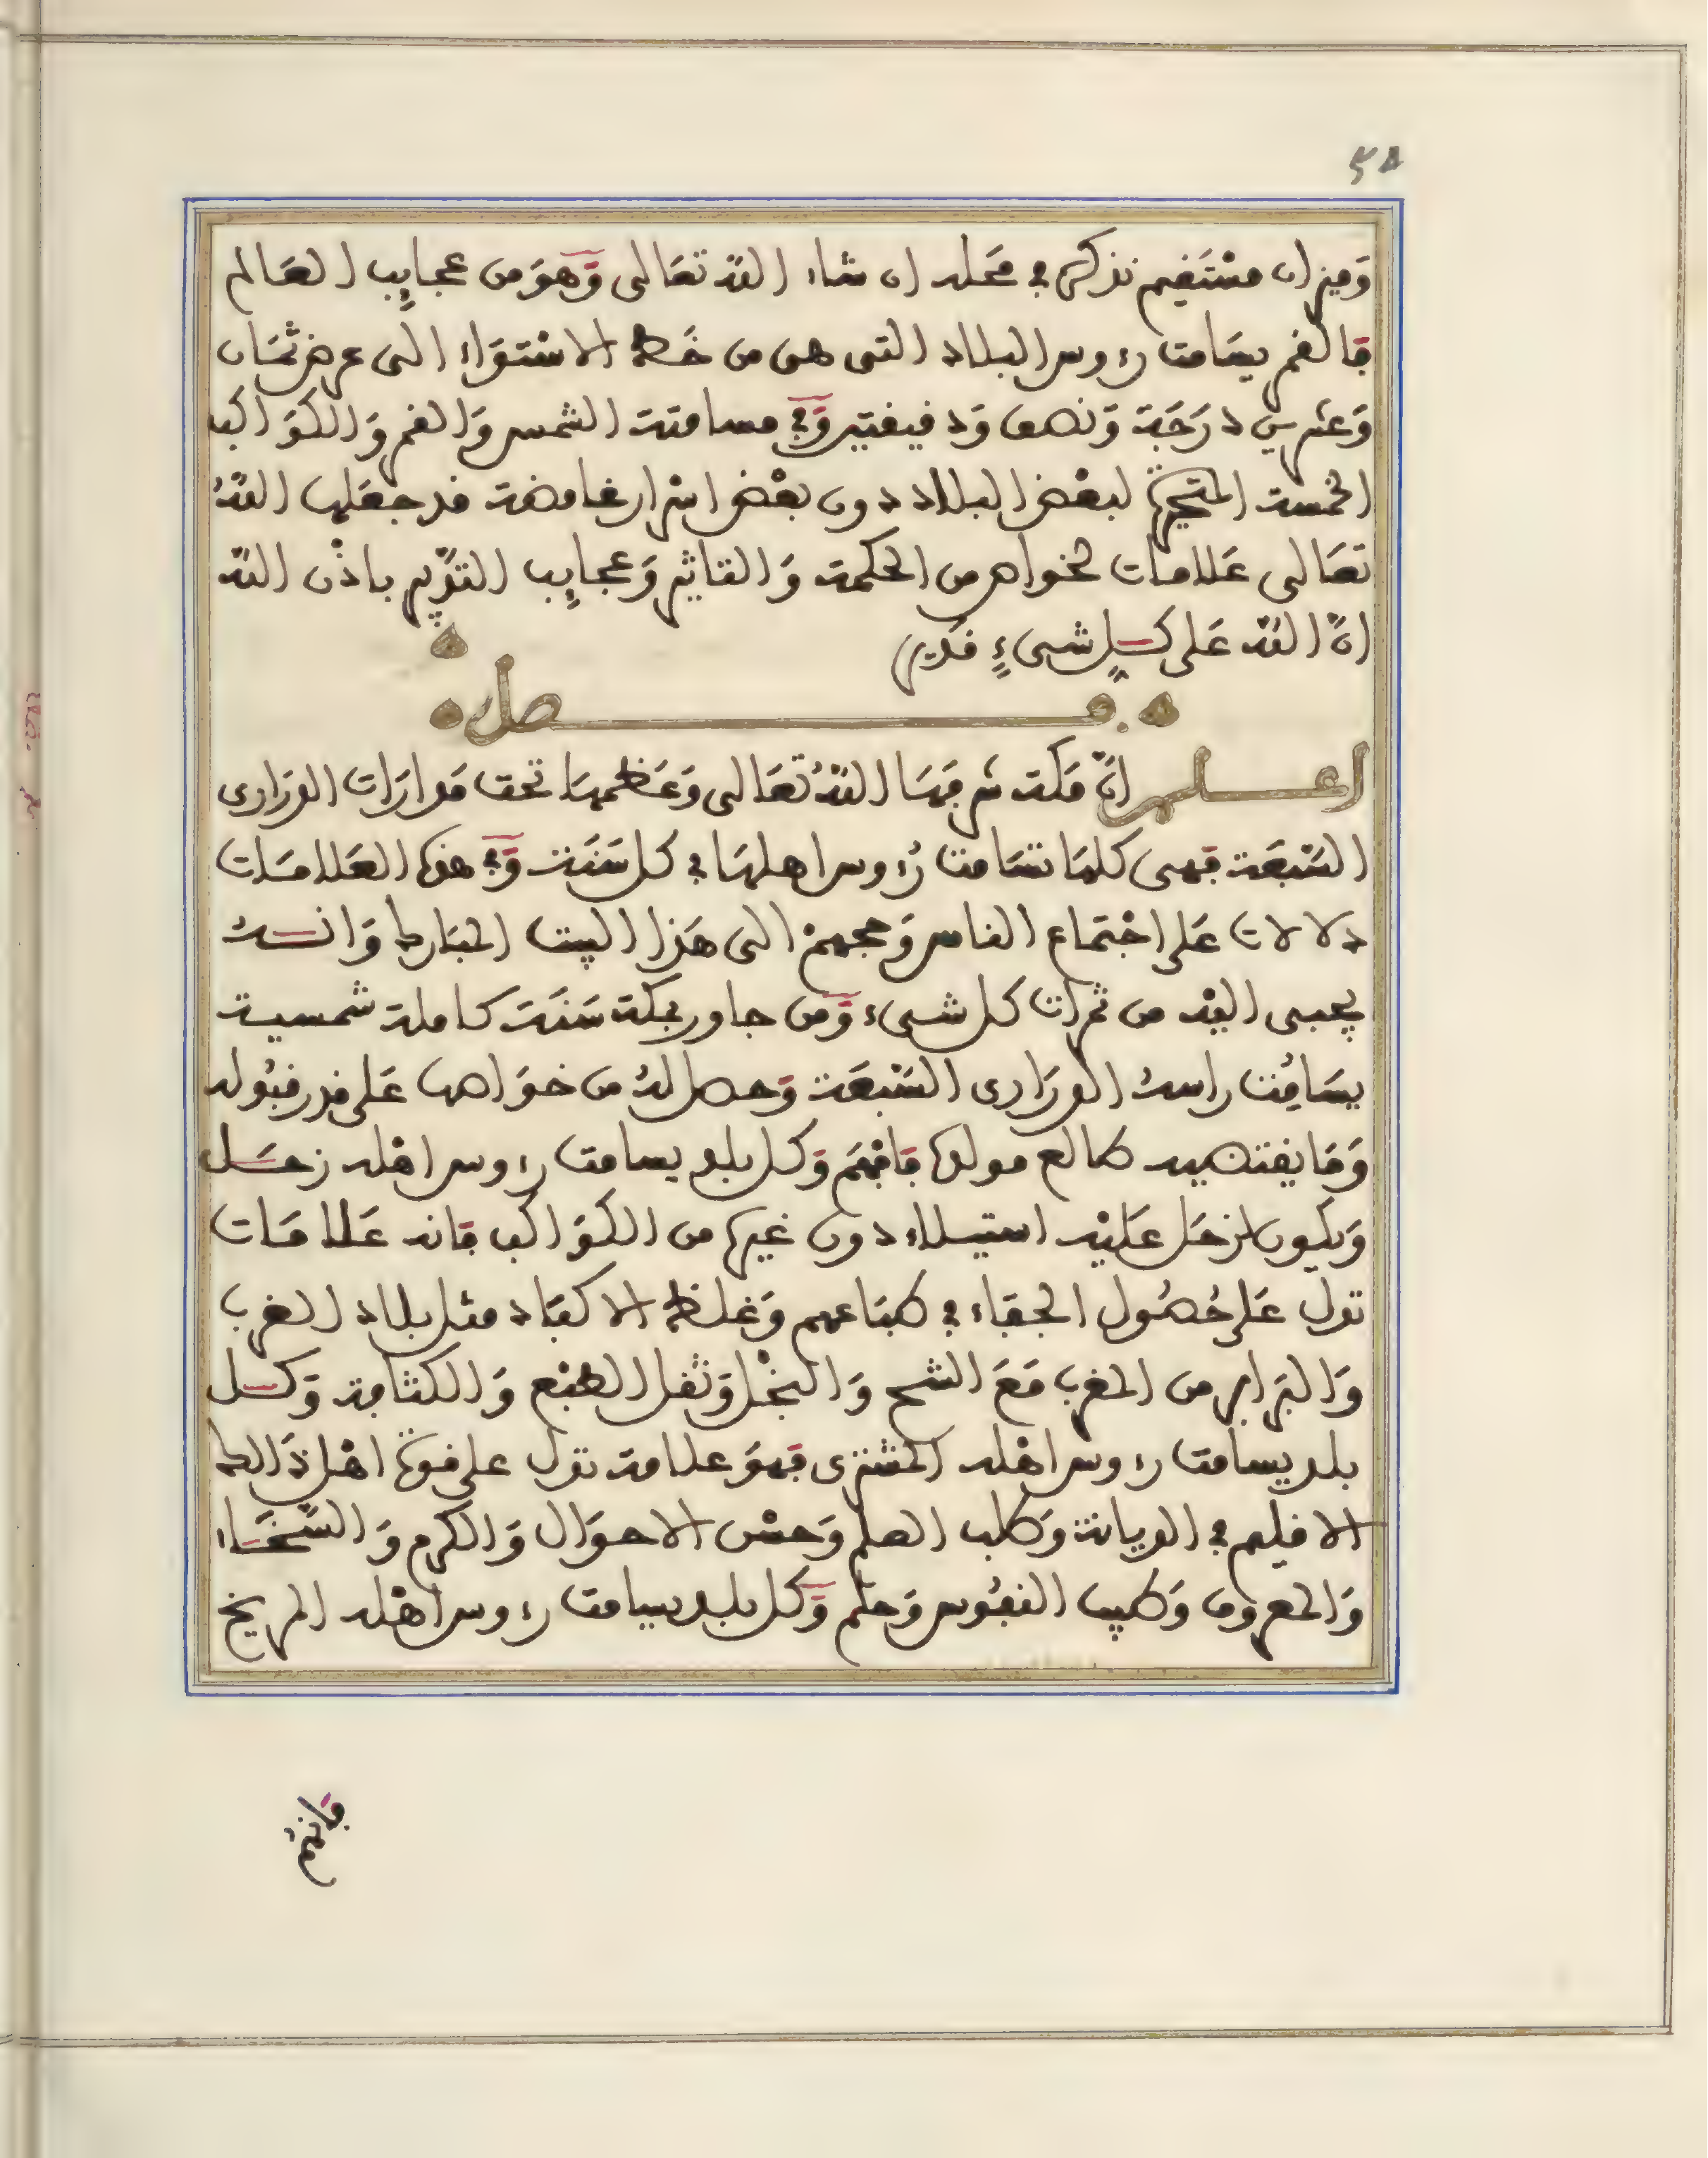 ٥٨
وَميزان مسْتَقيم نذكره في مَحَله ان شاء اللّه تعَالى وَهوَ من عجايب العَالم
فالقمر يسَامت رءوس البلاد التى هى من خَط الاسْتوَاء الى عرض ثمَان
وَعشرين دَرَجَة وَنصف وَدقيقتين وَفي مسامتة الشمس وَالقمر وَالكوَاكب
الخمسة المتحيرة لبعْض البلاد دون بعْض اسْرار غامضة قد جعَلها اللّهُ
تعَالى عَلامات لخواص من الحكمة وَالتاثير وَعجايب التدْبير باذْن اللّه
انّ اللّه عَلى كل شىءٍ قدير
فصل
اعلم انّ مَكة شرفهَا اللّهُ تعَالى وَعَظمهَا تحت مَدارَات الدرَارى
السّبْعَة فهى كلهَا تسَامت رُءوس اهلهَا في كل سَنَة وَفي هذه العَلامَات
دلالات عَلى اجْتمَاع الناس وَحجهمْ الى هَذا البيت المبَارك وَانهُ
يجبى اليْه من ثمرات كل شىء وَمن جاور بمكة سَنَة كاملة شمسية
يسَامتُ راسهُ الدرَارى السّبْعَة وَحصل لهُ من خوَاصها عَلى قدر قبُوله
وَمَا يقتضيه طالع مولده فافْهَم وَكل بلد يسامت رءوس اهْله زحَل
وَيكون لزحَل عَليْه استيلاء دون غيره من الكوَاكب فانه عَلامَات
تدل عَلى حُصُول الجفَاء في طبَاعهم وَغلظ الاكبَاد مثل بلاد الغرب
وَالبَرابر من المغرب مَعَ الشح وَالبخْل وَثقل الطبْع وَالكثافة وَكل
بلد يسامت رءوس اهْله المشترى فهوَ علامة تدل على قوة اهْل ذَالك
الاقليم في الديانة وَطلب العلم وَحسْن الاحوَال وَالكرم وَالسّخَاء
وَالمعروف وَطيب النفُوس وَحلم وَكل بلد يسامت رءوس اهْله المريخ
فانهُم